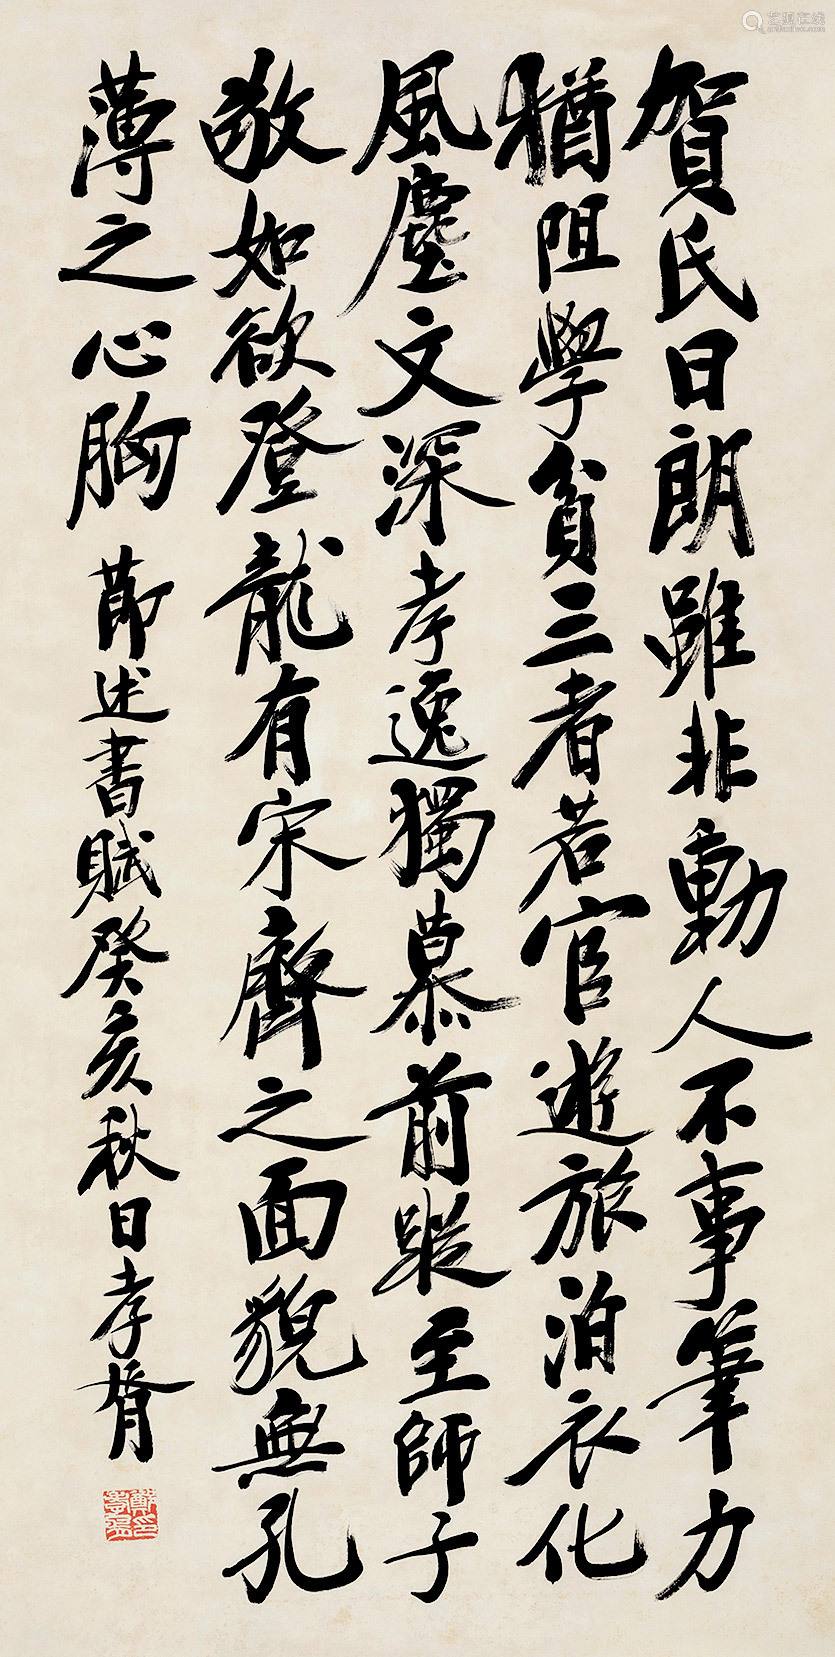 賀氏日朗雖非動人不事筆力
猶阻學貧三者若官遊旅泊衣化
風塵文深孝逸獨慕前蹤至師子
敬如欲登龍有宋齊之面貌無孔
薄之心胸 節述書賦癸亥秋日孝胥
艺狐在线